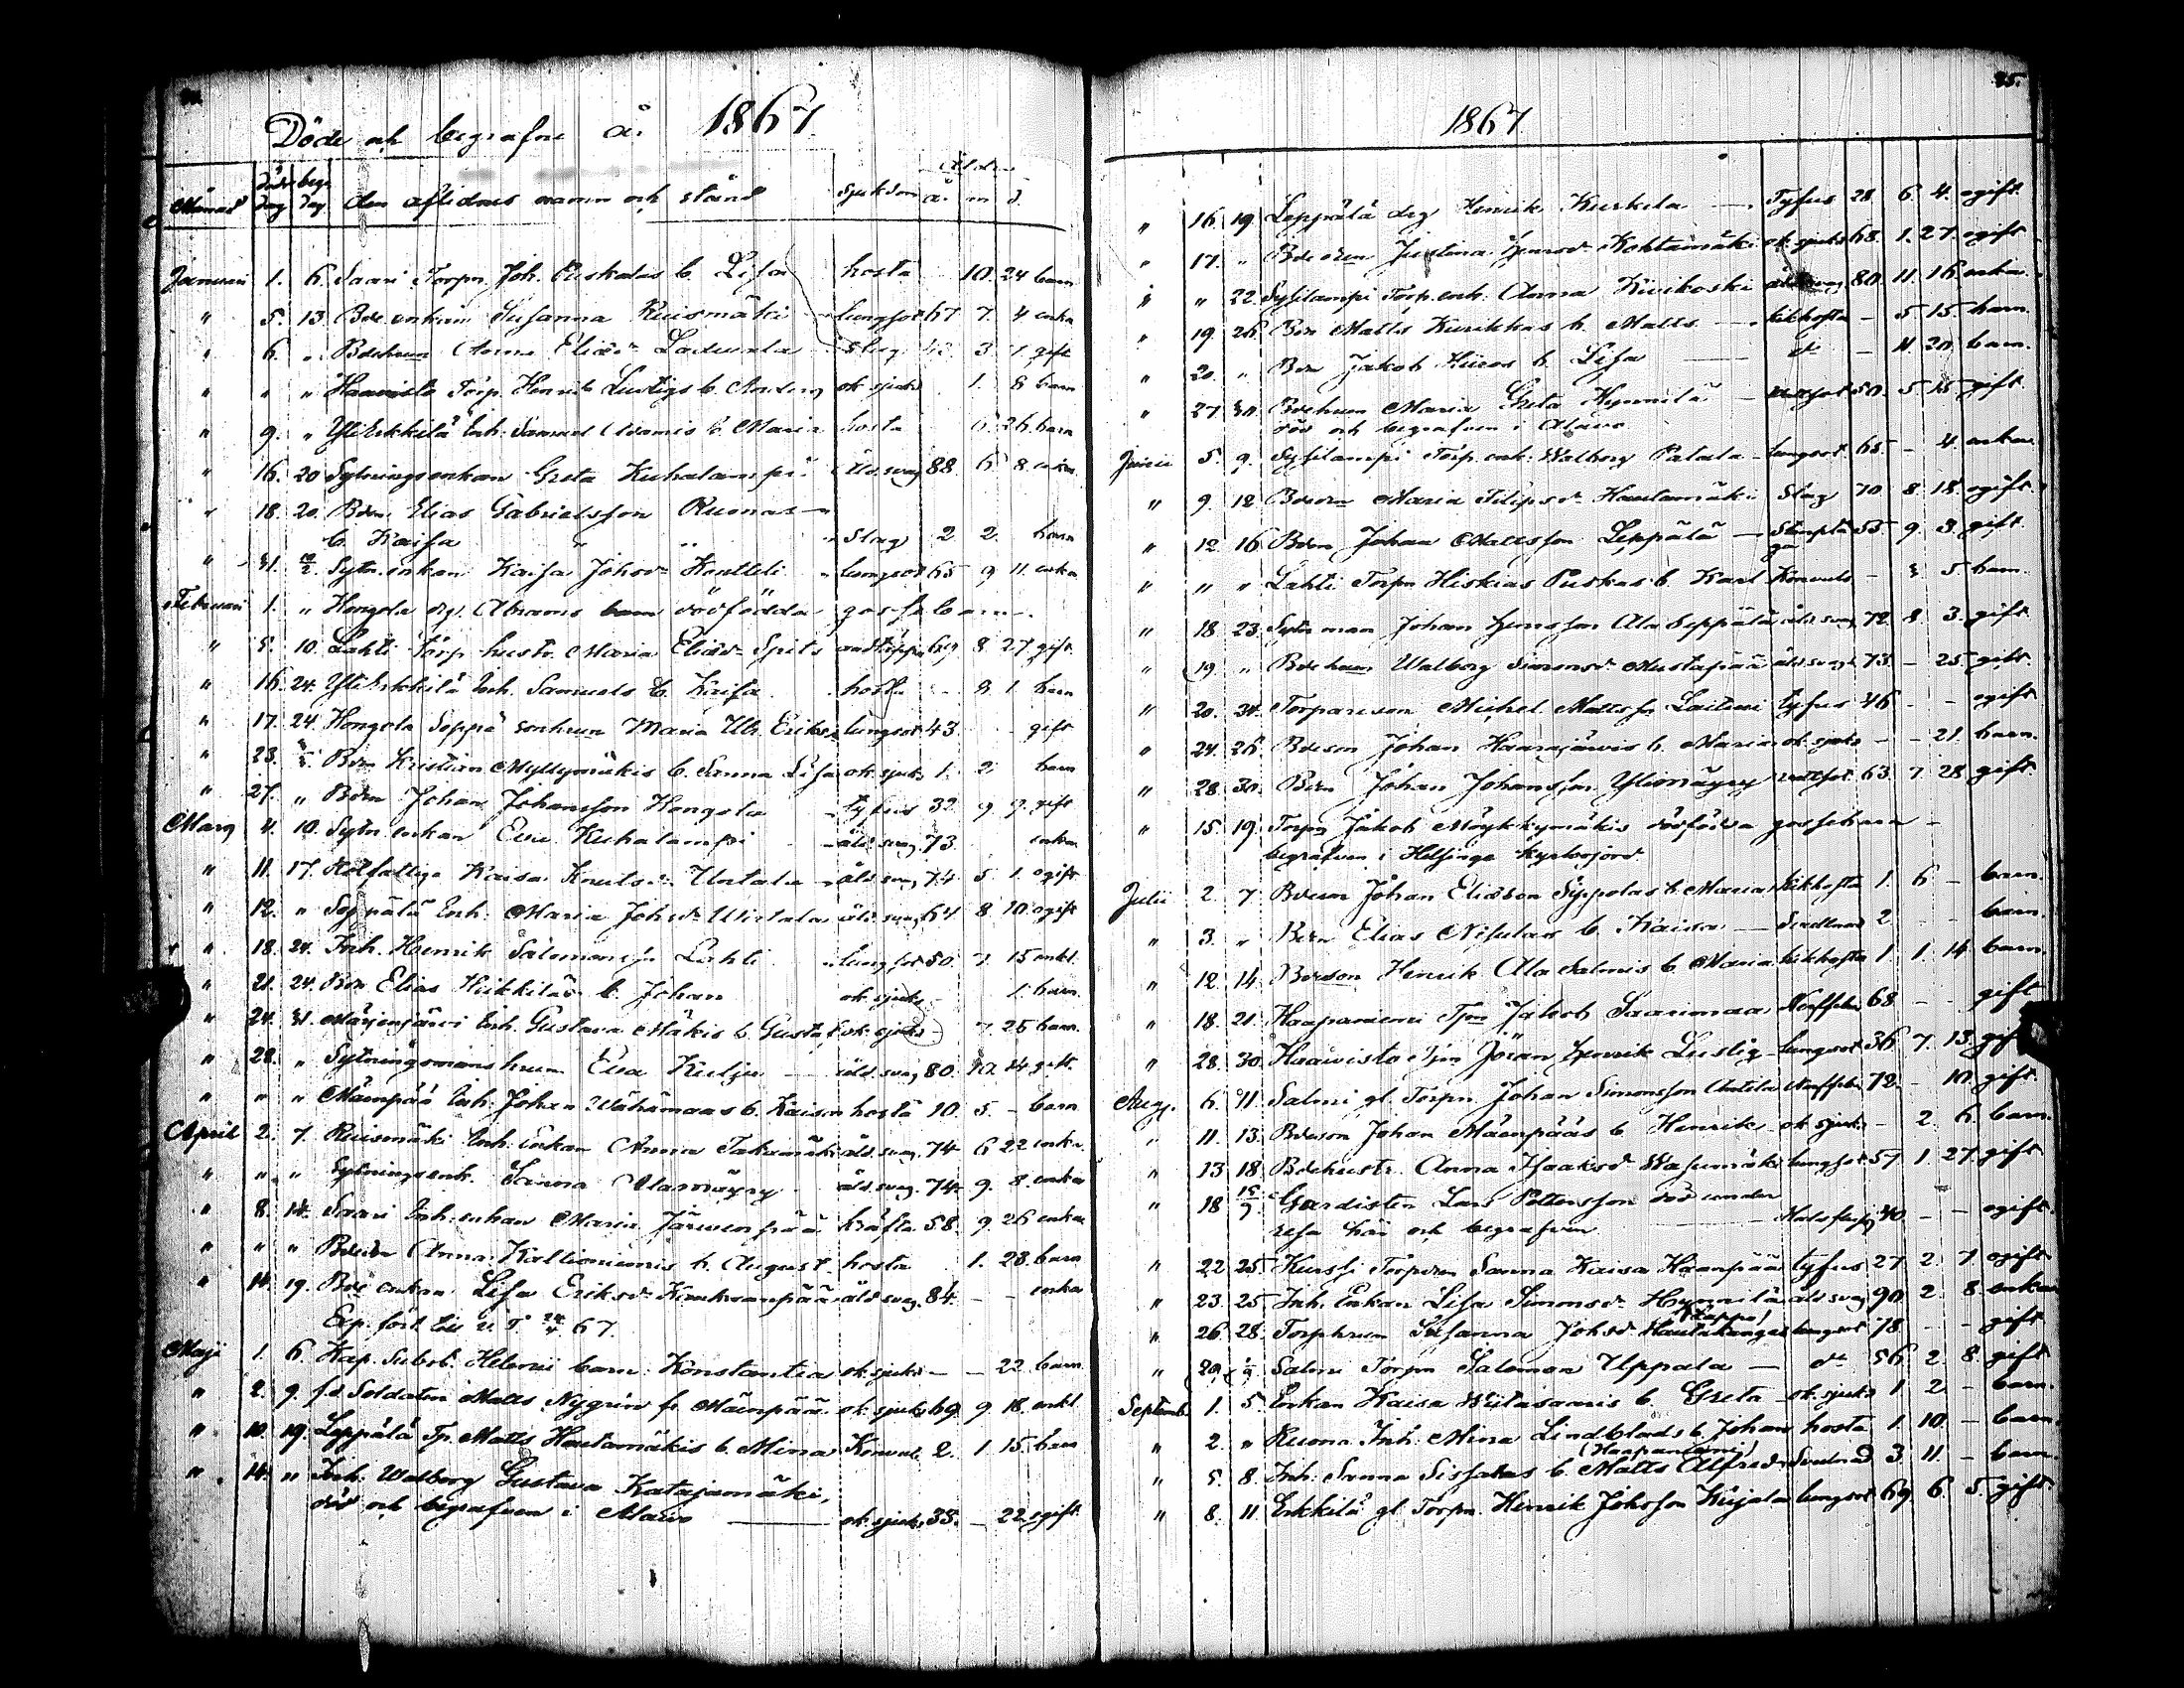 Döde och begrafne år 1867
Månad döds dag begr. dag den aflidnes namn och stånd sjukdom Ålder å. m. d.
Januari 1. 6. Saari Torpn Joh. Piskalas b. Lisa hosta 10. 24 barn
" 5. 13. Bde enkan Susanna Ruismäki lungsot 67 7. 4 enka
" 6. " Bdehrun Anna Eliasdr slag 3. 1. gift
" " " Haavisto Torp. Henrik Lustigs b. Anders ok. sjukd 1. 8 barn
" 9. " YliErkkilä Inh. Samuel Adamis b. Maria hosta 6. 26. barn
" 16. 20 Sytningsenkan Greta Kuhalampi åld. svag 88. 6 8. enka
" 18. 20. Bdn Elias Gabrielsson Ruonas
b. Kaisa slag 2. 2. barn
" 31. 10/2. Sytn. enkan Kaisa Johsdr Kontteli lungsot 65 9 11. enka
Februari 1. " Hongola Abrams barn dödfödda gossebarn.
" 5. 10. Lahti Torp. hustr. Maria Eliasdr Spets andtäppa 69 8 27 gift
" 16. 24. YliErkkilä Inh. Samuels b. Kaisa hosta 9. 1. barn
" 17. 24. Hongola Seppä sonhrun Maria Ulr. Eriksdr lungsot 43. gift
" 23. Bdn Kristian Myllymäkis b. Sanna Lisa ok. sjukd 1. 2. barn
" 27. " Bdn Johan Johansson Hongola tyfus 32. 9 9. gift
Mars 4. 10. Sytn. enkan Eva Kuhalampi åld. svag 73. enka
" 11. 17. Rotfattiga Kaisa Knutsdr Untala åld. svag 74 5 1. ogift
" 12. " Seppälä Inh. Maria Johsdr åld. svag 64 8 10. ogift
" 18. 24. Inh. Henrik Salomonss. Lahti lungsot 50. 7. 15 enkl.
" 21. 24. Bdn Elias Heikkiläs b. Johan ok. sjukd 1. barn.
" 24. 31. Märjenjärvi Inh. Gustava Mäkis b. Gustaf ok. sjukd 7. 25 barn.
" 28. " Sytningsmans hrun Eva Kulju åld. svag 80. 10. 14 gift.
" " " Mäenpää Inh. Johan Wähämaas b. Kaisa hosta 10. 5. - barn
April 2. 7. Ruismäki Inh. Enkan Anna Takamäki åld. svag. 74 6 22 enka.
" " " Sytningsenk. Sanna Alamäyry åld. svag. 74. 9. 8. enka
" 8. 14. Saari Inh. enkan Maria Järvenpää kräfta 58. 9. 26 enka
" " " Bdedr Anna Kallioniemis b. August hosta 1. 23. barn
" 14. 19. Bde enkan Lisa Eriksdr åld svag. 84. - - enka
Exp. förl. till v. P. 24/4 67.
Maji 1. 6. Kap. Subst. Helenii barn Konstantia ok. sjukd - - 22. barn
" 2. 9. f.d. Soldaten Matts Nygrén fr. Mäenpää ok. sjukd 69. 9 18. enkl.
" 10. 19. Leppälä Tp. Matts Hautamäkis b. Minna Konvuls 2. 1 15. barn
" 14. " Inh. Walborg Gustava Katajamäki,
död och begrafven i Alavo ok. sjukd. 33. - 22. ogift
25.
1867
" 16. 19. Leppälä drg Henrik Kuskela Tyfus 28 6 4. ogift
" 17. " Bdedren Justina Hinrsdr Kohtamäki ok. sjukd 68. 1. 27. ogift
" " 22. Syfilampi Torp. enk. Anna Kivikoski 80. 11. 16. enka.
" 19. 26 Bdn Matts Kurikkas b. Matts kikhosta - 5 15. barn.
" 20. " Bdn Jakob b. Lisa do - 11. 20. barn.
" 27. 30. Bdehrun Maria Greta Hynnilä 50. 5. 15 gift
död och begrafven i Alavo
Junii 5. 9. Syfilampi Torp. enk. Walborg Patala lungsot 65. - 4. enka
" 9. 12 Bdedrn Maria Filipsdr Hautamäki Slag 70 8. 18. ogift.
" 12. 16. Bdn Johan Mattsson Leppälä 55. 9. 3. gift
" " " Lahti Torpn Hiskias Puskas b. Karl Konvuls - 3 5. barn.
" 18. 23. Sytn. man Johan Hinrsson Ala Seppälä åld svag 72. 8. 3. gift
" 19. " Bdehrun Walborg Simonsdr Mustapää åld svag 73. - 25. gift
" 20. 30. Torpareson Michel Mattss. Laitene tyfus 46 - - ogift
" 24. 26. Bdeson Johan Haarajärvis b. Maria ok. sjukd - - 21. barn.
" 28. 30. Bdn Johan Johansson Ylimäyry vattsot 63. 7 28 gift.
" 15. 19. Torpn Jakob Möykkymäkis dödfödda gossebarn -
begrafven i Helsinge kyrkojord.
Julii 2. 7. Bdeson Johan Eliasson Sippolas b. Maria kikhosta 1. 6 - barn.
" 3. " Bdn Elias Nisulas b. Kaisa 2 - - barn.
" 12. 14. Bdeson Henrik Ala Salmis b. Maria kikhosta 1. 1 14. barn.
" 18. 21. Haapaniemi Tpn Jakob Saarimaa Nerffeber 68 - - gift
" 28. 30. Haavisto Tpn Johan Henrik Lustig lungsot 36 7. 13. gift
Aug. 6. 11. Salmi gl. Torpn Johan Simonsson Antila Nerffeber 72. - 10. gift.
" 11. 13. Bdeson Johan Mäenpääs b. Henrik ok. sjukd - 2. 6. barn.
" 13 18. Bdehustr. Anna Isaaksdr Wasumäki lungsot 57 1. 27. gift
" 18 15/9 Gardisten Lars Pettersson död under
resa här och begrafven 40. - - ogift.
" 22 25. Torpdren Sanna Kaisa Haanpää tyfus 27 2. 7 ogift
" 23. 25 Inh. Enkan Lisa Simonsdr Hynnilä åld svag 90 2 8. enka
" 26. 28. Torphrun Susanna Johsdr Hautakangas lungsot 78 - - gift
" 29. 1/9 Salmi Torpn Salomon Uppala do 56 2. 8. gift
Septemb. 1. 5. Enkan Kaisa b. Greta ok. sjukd 1 2 - barn.
" 2. " Ruona Inh. Mina Lindblads b. Johan hosta 1. 10. - barn.
(Haapaniemi)
" 5. 8. Inh. Sanna b. Matts Alfred 3 11. - barn.
" 8. 11. Erkkilä gl. Torpn Henrik Johsson Kujala lungsot 69 6. 5. gift